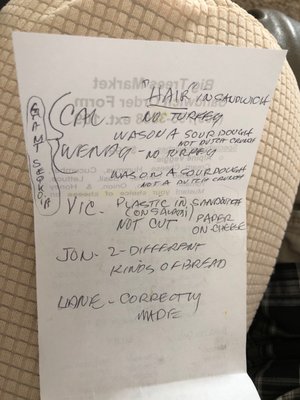 "HAIR" IN SANDWICH
CAL - NO TURKEY
WAS ON A SOURDOUGH
NOT DUTCH CRUNCH
WENDY - NO TURKEY
WAS ON A SOURDOUGH
NOT A DUTCH CRUNCH
GIANT SEQUOIA
VIC - PLASTIC IN SANDWICH
(ON SALAMI)
NOT CUT
PAPER
ON CHEESE
JON - 2 - DIFFERENT
KINDS OF BREAD
- CORRECTLY
MADE
Big Trees Market
Order Form